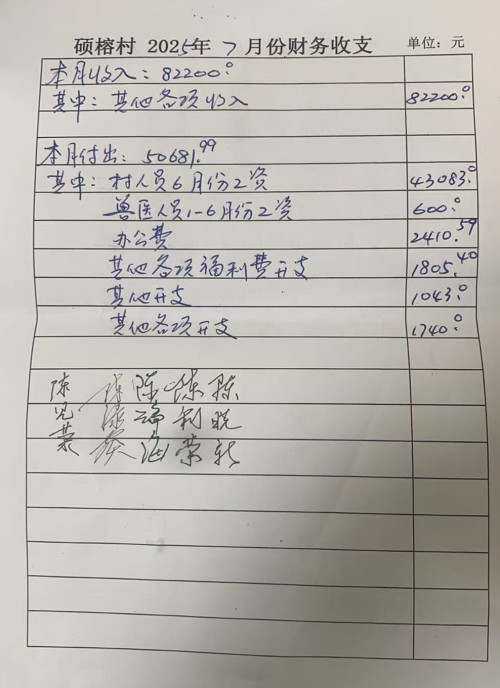 硕榕村 2025年 7月份财务收支 单位：元
本月收入：82200.0
其中：其他各项收入 82200.0
本月付出：50681.99
其中：村人员6月份工资 43083.0
兽医人员1-6月份工资 600.0
办公费 2410.59
其他各项福利费开支 1805.40
其他开支 1043.0
其他各项开支 1740.0
陈 陈 陈 陈
兄 瑞 利 晓
荣 海 荣 新